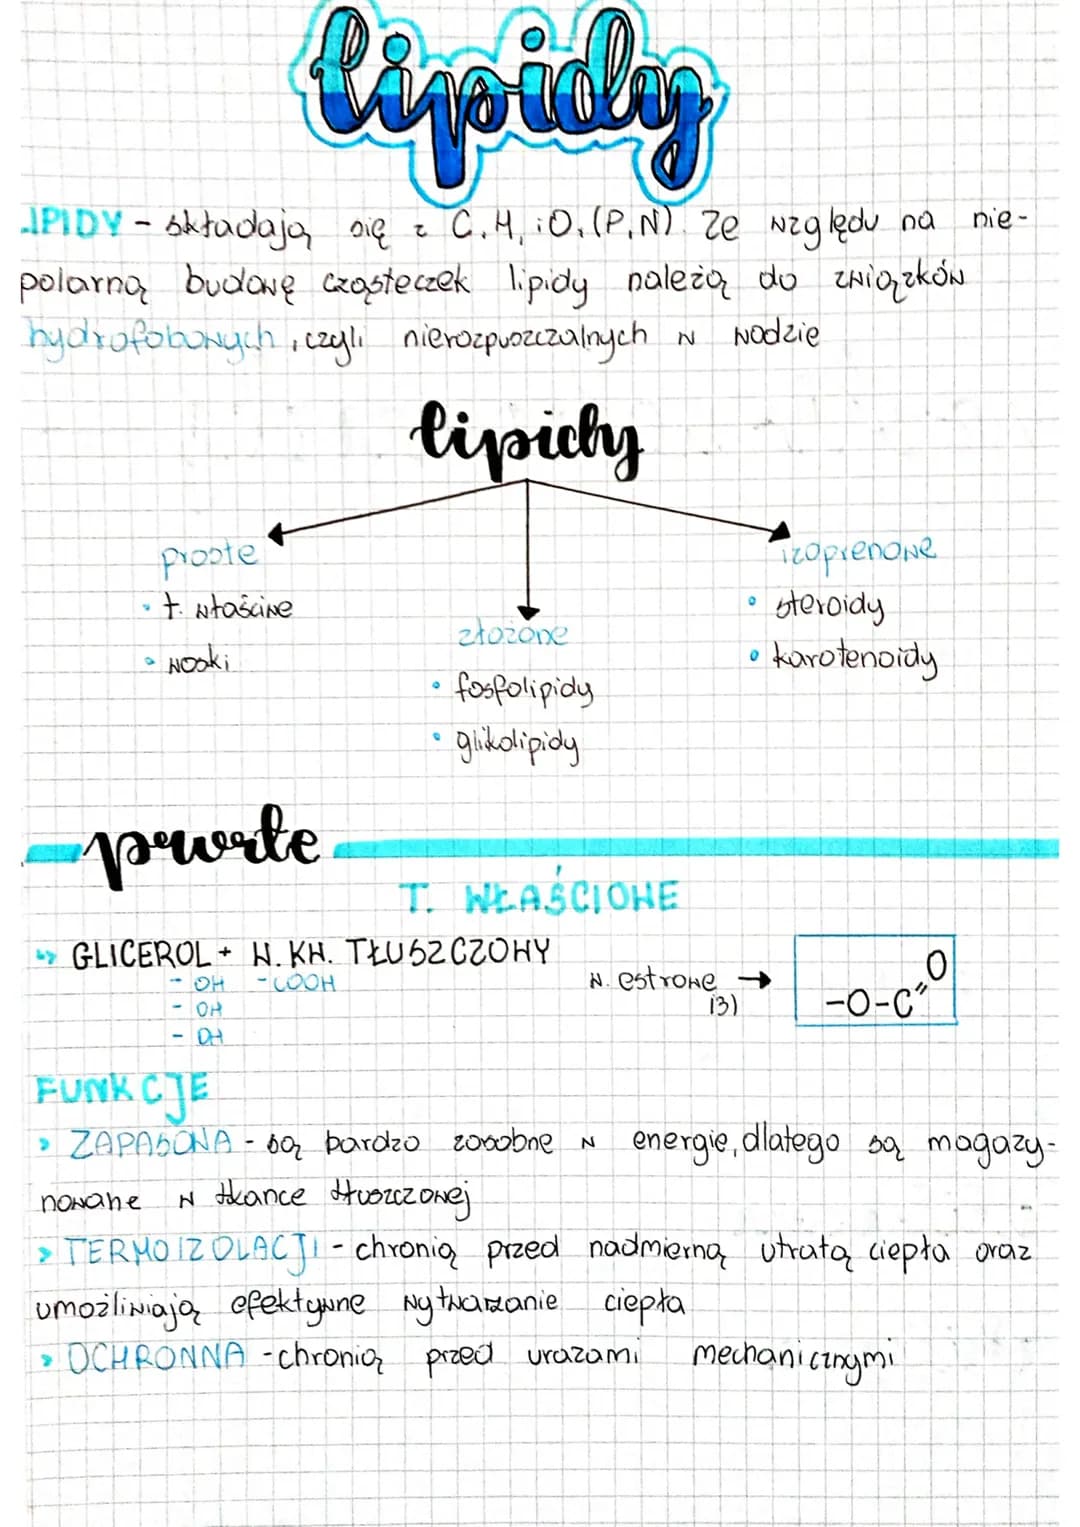 lipidy
LIPIDY - składają się z C, H, i O, (P, N). Ze względu na nie-
polarną budowę cząsteczek lipidy należą do związków
hydrofobowych, czyli nierozpuszczalnych w wodzie
lipidy
proste
• t. właściwe
• woski
złożone
• fosfolipidy
• glikolipidy
izoprenowe
• steroidy
• karotenoidy
proste
T. WŁAŚCIWE
↳ GLICEROL + W. KW. TŁUSZCZOWY
- OH -COOH
- OH
- OH
w. estrowe →
(3)
-O-C=O
FUNKCJE
> ZAPASOWA - są bardzo zasobne w energię, dlatego są magazy-
nowane w tkance tłuszczowej
> TERMOIZOLACJI - chronią przed nadmierną utratą ciepła oraz
umożliwiają efektywne wytwarzanie ciepła
> OCHRONNA - chronią przed urazami mechanicznymi